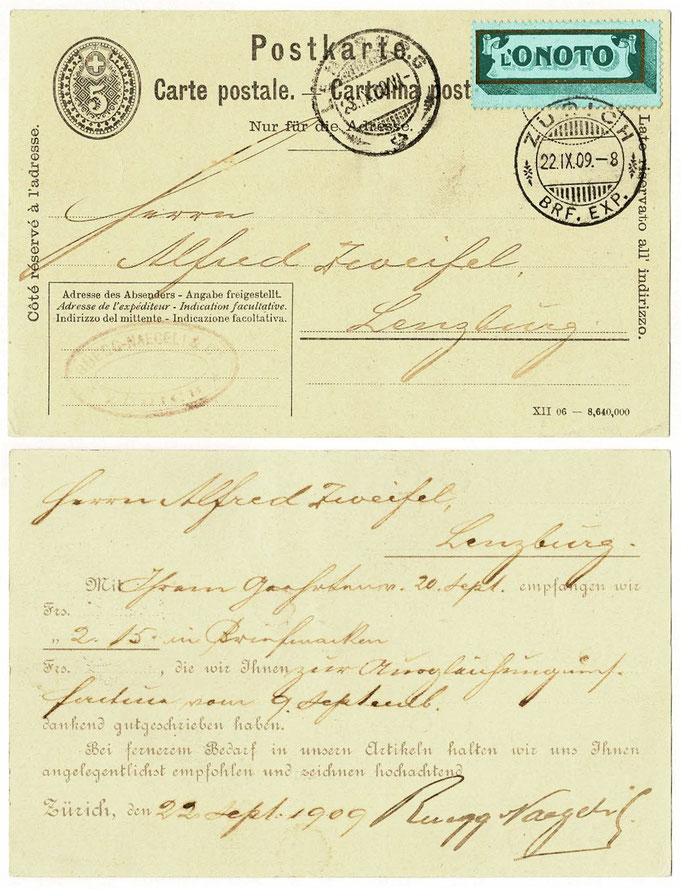 Postkarte.
Carte postale. — Cartolina post
Nur für die Adresse.
5
L'ONOTO
ZÜRICH
22.IX.09.–8
BRF. EXP.
Côté réservé à l'adresse.
Lato riservato all' indirizzo.
Herrn
Alfred Zweifel,
Lenzburg.
Adresse des Absenders - Angabe freigestellt.
Adresse de l'expéditeur - Indication facultative.
Indirizzo del mittente - Indicazione facoltativa.
XII 06 — 8,640,000
Herrn Alfred Zweifel,
Lenzburg.
Mit Ihrem Geehrten v. 20. Sept. empfangen wir
Frs.
„ 2.15 in Briefmarken
Frs. , die wir Ihnen zur Ausgleichung uns.
factura vom 9. Septemb.
dankend gutgeschrieben haben.
Bei fernerem Bedarf in unsern Artikeln halten wir uns Ihnen
angelegentlichst empfohlen und zeichnen hochachtend
Zürich, den 22 Sept. 1909 Ruegg Naegeli